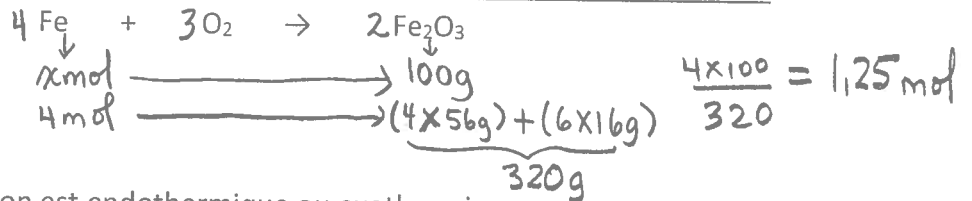 4 Fe + 3 O₂ → 2 Fe₂O₃
x mol → 100g
4 mol → (4×56g) + (6×16g)
320g
4×100 / 320 = 1,25 mol
on est endothermique ou